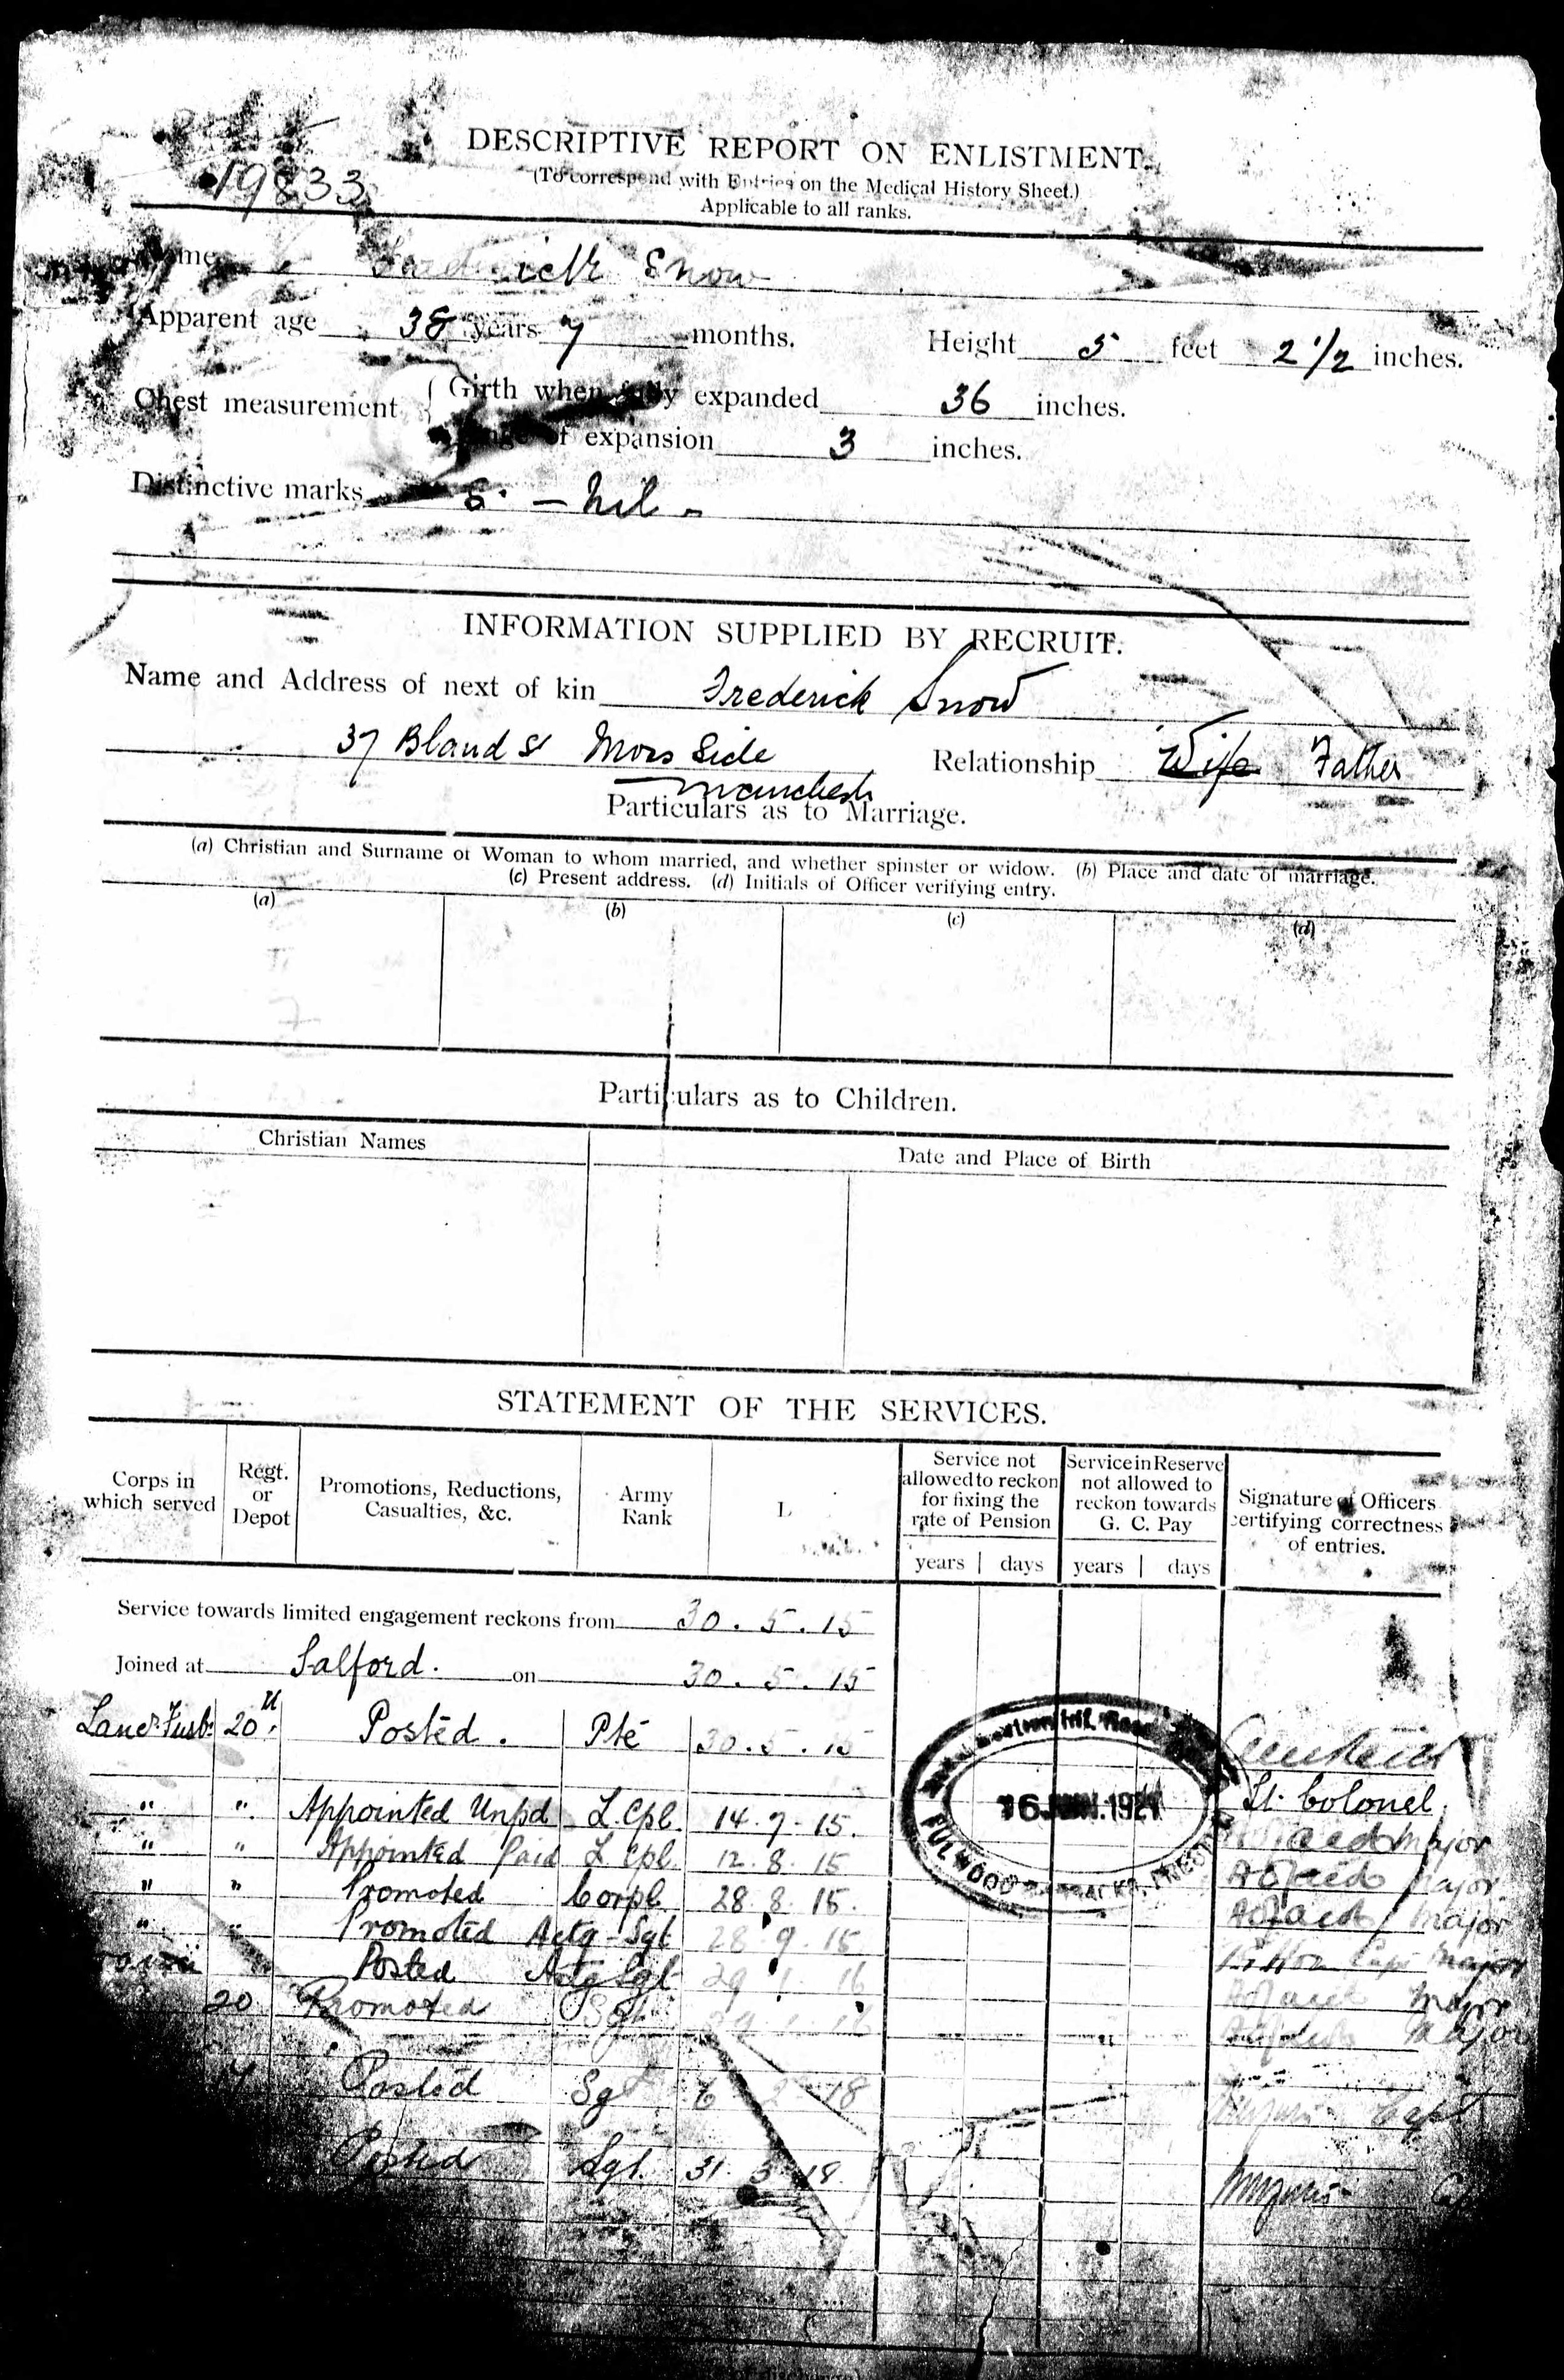 DESCRIPTIVE REPORT ON ENLISTMENT.
(To correspond with Entries on the Medical History Sheet.)
Applicable to all ranks.
19833
Name Frederick Snow
Apparent age 38 years 7 months. Height 5 feet 2 1/2 inches.
Chest measurement { Girth when fully expanded 36 inches.
Range of expansion 3 inches.
Distinctive marks - Nil -
INFORMATION SUPPLIED BY RECRUIT.
Name and Address of next of kin Frederick Snow
37 Bland St Moss Side Relationship Wife Father
Manchester
Particulars as to Marriage.
(a) Christian and Surname of Woman to whom married, and whether spinster or widow. (b) Place and date of marriage.
(c) Present address. (d) Initials of Officer verifying entry.
(a) (b) (c) (d)
Particulars as to Children.
Christian Names Date and Place of Birth
STATEMENT OF THE SERVICES.
Corps in which served Regt. or Depot Promotions, Reductions, Casualties, &c. Army Rank Service not allowed to reckon for fixing the rate of Pension Service in Reserve not allowed to reckon towards G. C. Pay Signature of Officers certifying correctness of entries.
years days years days
Service towards limited engagement reckons from 30.5.15
Joined at Salford. on 30.5.15
Lanc. Fusrs 20th Posted. Pte 30.5.15
Lt. Colonel
" " Appointed Unpd L.Cpl. 14.7.15. Major
" " Appointed Paid L.Cpl. 12.8.15 Major
" " Promoted Corpl. 28.8.15. Major
" " Promoted Actg-Sgt 28.9.15 Major
Posted Actg Sgt 29 1 16 Major
20 Promoted Sgt. 29 1 16 Major
Posted Sgt 6 2 18 Capt
Posted Sgt. 31 3 18.
16 JUN. 1921
FULWOOD BARRACKS, PRESTON